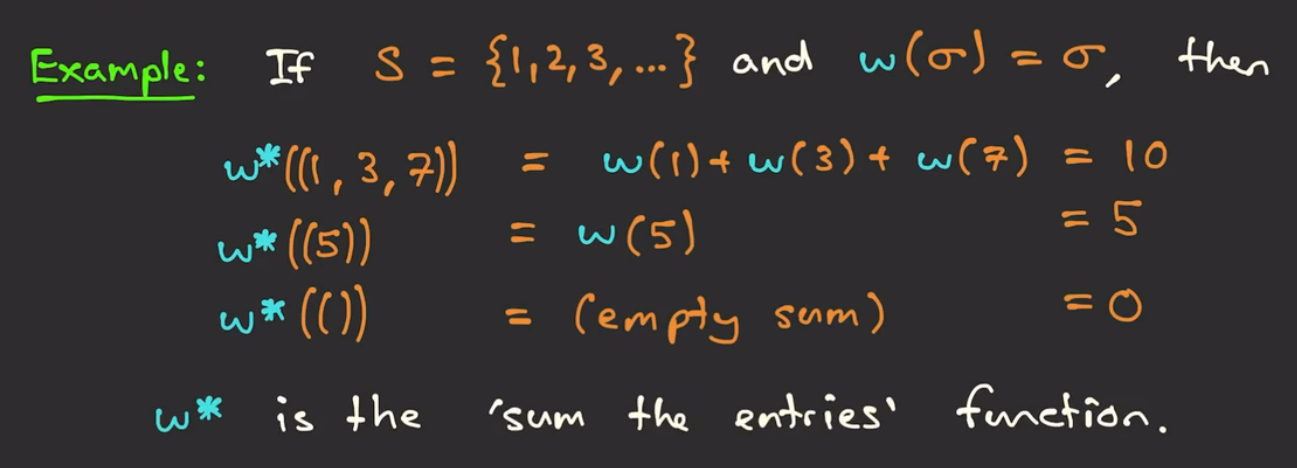 Example: If S = {1,2,3,...} and w(σ) = σ, then
w*((1,3,7)) = w(1)+w(3)+w(7) = 10
w*((5)) = w(5) = 5
w*(()) = (empty sum) = 0
w* is the 'sum the entries' function.